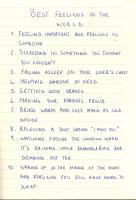 BEST FEELINGS IN THE
WORLD:
1. FEELING IMPORTANT AND PRECIOUS TO
SOMEONE
2. SUCCEEDING IN SOMETHING YOU THOUGHT
YOU COULDN'T
3. FALLING ASLEEP ON YOUR LOVER'S CHEST
4. HELPING SOMEONE IN NEED
5. GETTING GOOD GRADES
6. MAKING YOUR PARENTS PROUD
7. BEING WARM AND COSY WHEN ITS COLD
OUTSIDE
8. RECEIVING A TEXT SAYING "I MISS YOU"
9. WATCHING OUTSIDE THE WINDOW WHEN
IT'S RAINING WHILE REMINISCING AND
DRINKING HOT TEA
10. WAKING UP IN THE MIDDLE OF THE NIGHT
AND REALISING YOU STILL HAVE HOURS TO
SLEEP.